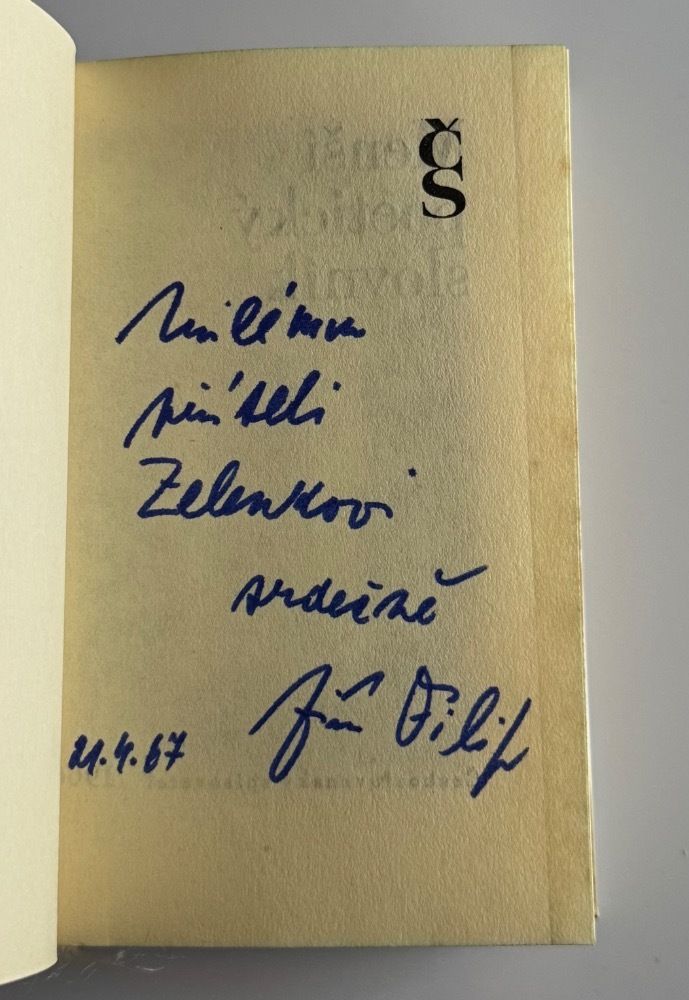 Č
S
milému
příteli
Zelenkovi
srdečně
Jiří Filip
21.4.67